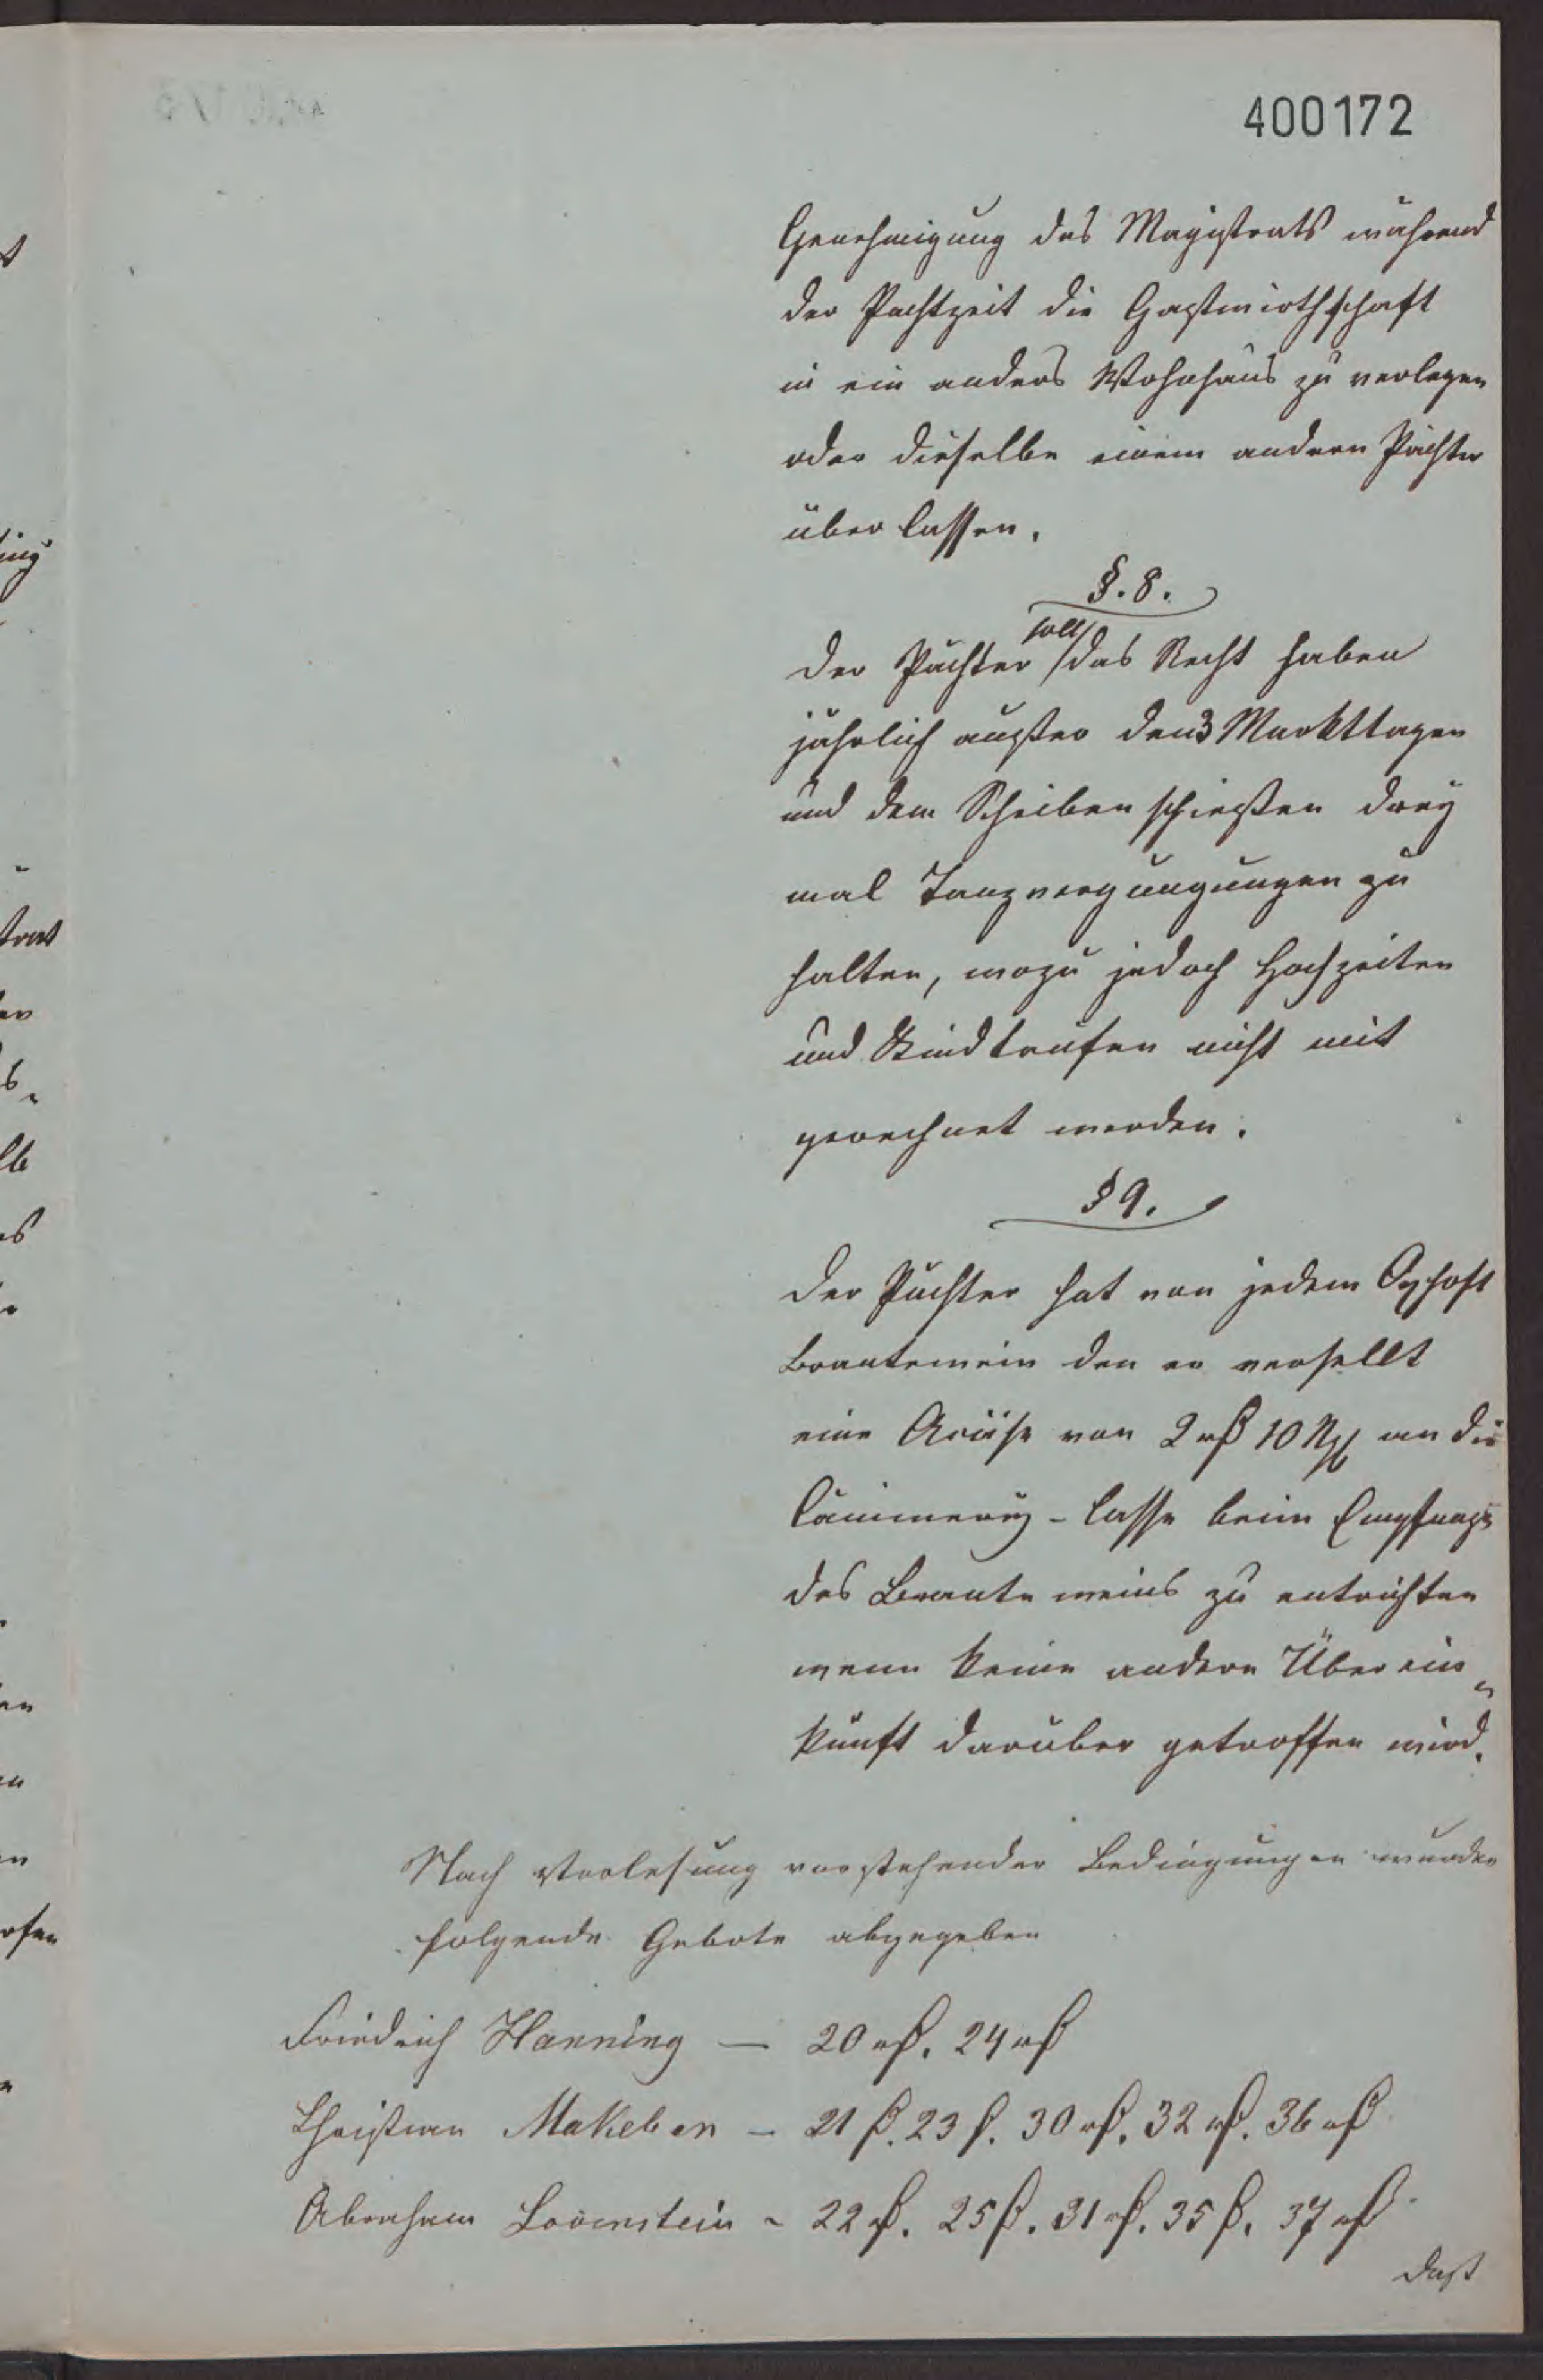 400172
Genehmigung des Magistrats während
der Pachtzeit die Gastwirthschaft
in ein anders Wohnhaus zu verlegen
oder dieselbe einem andern Pächter
überlassen.
§. 8.
Der Pächter soll das Recht haben
jährlich außer den 3 Markttagen
und dem Scheibenschießen drey
mal Tanzvergnügungen zu
halten, wozu jedoch Hochzeiten
und Kindtaufen nicht mit
gerechnet werden.
§ 9.
Der Pächter hat von jedem Oxhoft
Brantewein den er versellt
eine Accise von 2 rß 10 Ngl an die
Cämmerey-Casse beim Empfange
des Branteweins zu entrichten
wenn keine andere Überein„
kunft darüber getroffen wird.
Nach Vorlesung vorstehender Bedingungen wurden
folgende Gebote abgegeben
Friedrich Hanning — 20 rß. 24 rß
Christian Makeben – 21 ß. 23 ß. 30 rß. 32 rß. 36 rß
Abraham Löwenstein – 22 rß. 25 ß. 31 rß. 35 ß. 37 rß
Daß